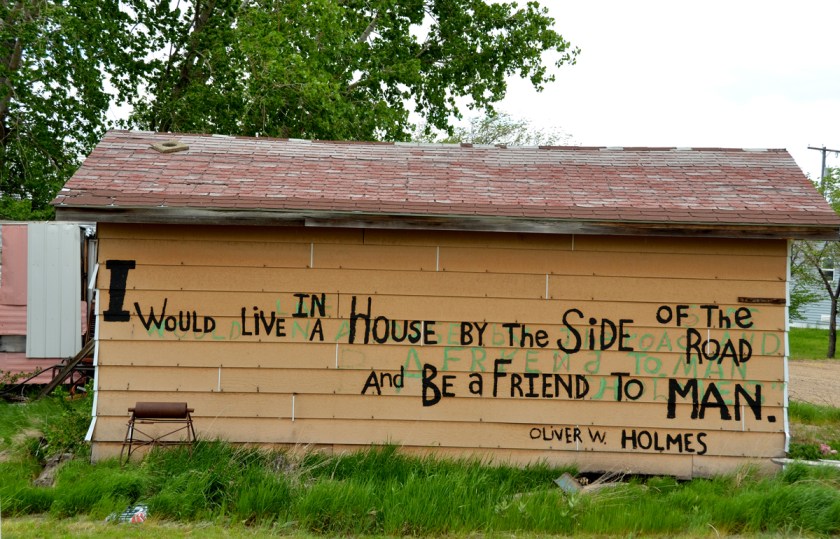 I WOULD LIVE IN A HOUSE BY THE SIDE OF THE ROAD
AND BE A FRIEND TO MAN.
OLIVER W. HOLMES